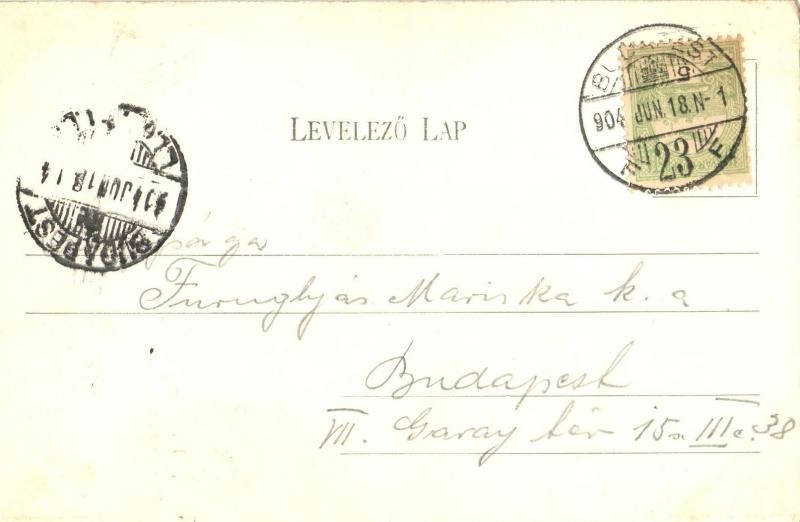 BUDAPEST
904 JUN. 18. N- 1
23
LEVELEZŐ LAP
904 JUN 18
BUDAPEST
Furuglyás Mariska k. a
Budapest
VII. Garay tér 15 sz III e. 38